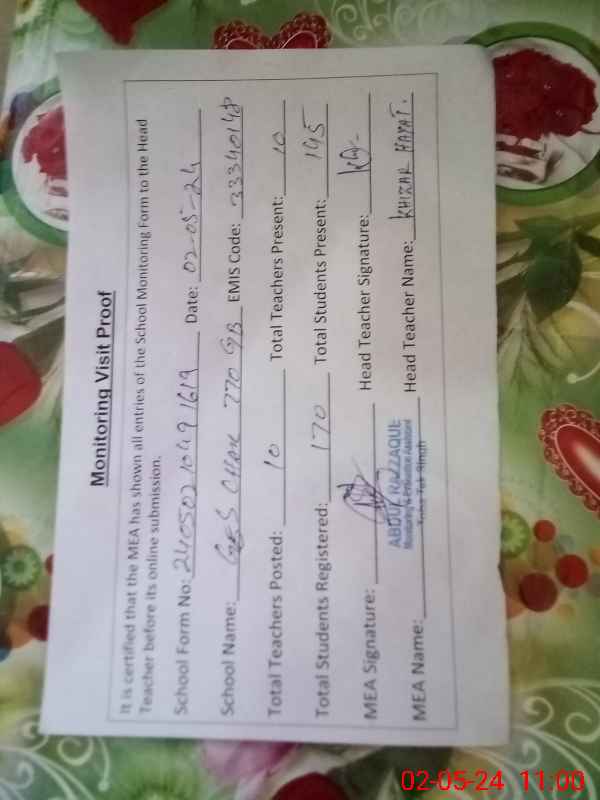 Monitoring Visit Proof
It is certified that the MEA has shown all entries of the School Monitoring Form to the Head
Teacher before its online submission.
School Form No: 2405021049 1619 Date: 02-05-24
School Name: GES CHAK 770 GB EMIS Code: 33340148
Total Teachers Posted: 10 Total Teachers Present: 10
Total Students Registered: 170 Total Students Present: 145
MEA Signature: Head Teacher Signature:
MEA Name: Head Teacher Name: KHIZAR HAYAT.
ABDUL RAZZAQUE
Monitoring & Evaluation Assistant
Toba Tek Singh
02-05-24 11:00